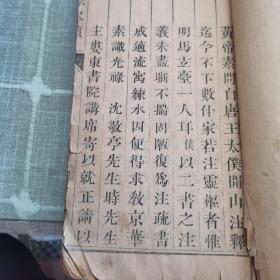 黃帝素問自唐王太僕開山注釋
迄今不下數什家若注靈樞者惟
明馬玄臺一人耳僕以二書之注
義未盡晰不揣固陋復爲注疏書
成適流寓練水因便得求教京華
素識光祿 沈敬亭先生時先生
主婁東書院講席寄以就正請以